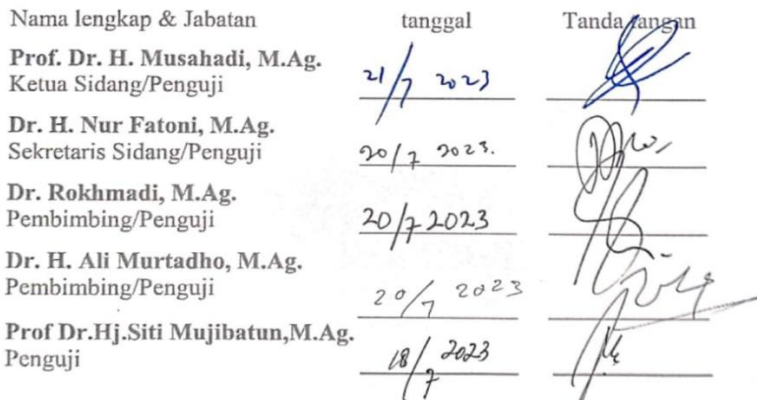 Nama lengkap & Jabatan tanggal Tanda tangan
Prof. Dr. H. Musahadi, M.Ag.
Ketua Sidang/Penguji 21/7 2023
Dr. H. Nur Fatoni, M.Ag.
Sekretaris Sidang/Penguji 20/7 2023.
Dr. Rokhmadi, M.Ag.
Pembimbing/Penguji 20/7 2023
Dr. H. Ali Murtadho, M.Ag.
Pembimbing/Penguji 20/7 2023
Prof Dr.Hj.Siti Mujibatun,M.Ag.
Penguji 18/7 2023